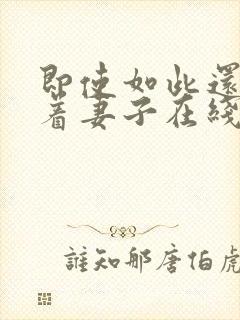 即使如此還
着妻子在綫
誰知那唐伯虎